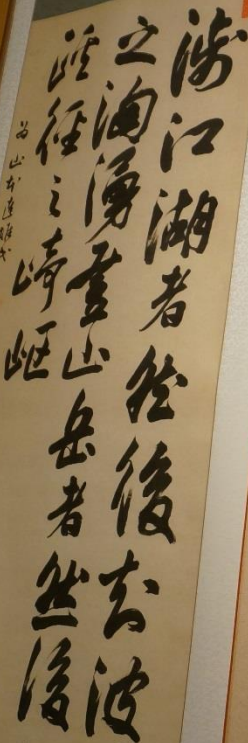 涉江湖者然後知波
之洶湧登山岳者然後
蹊徑之崎嶇
為山本